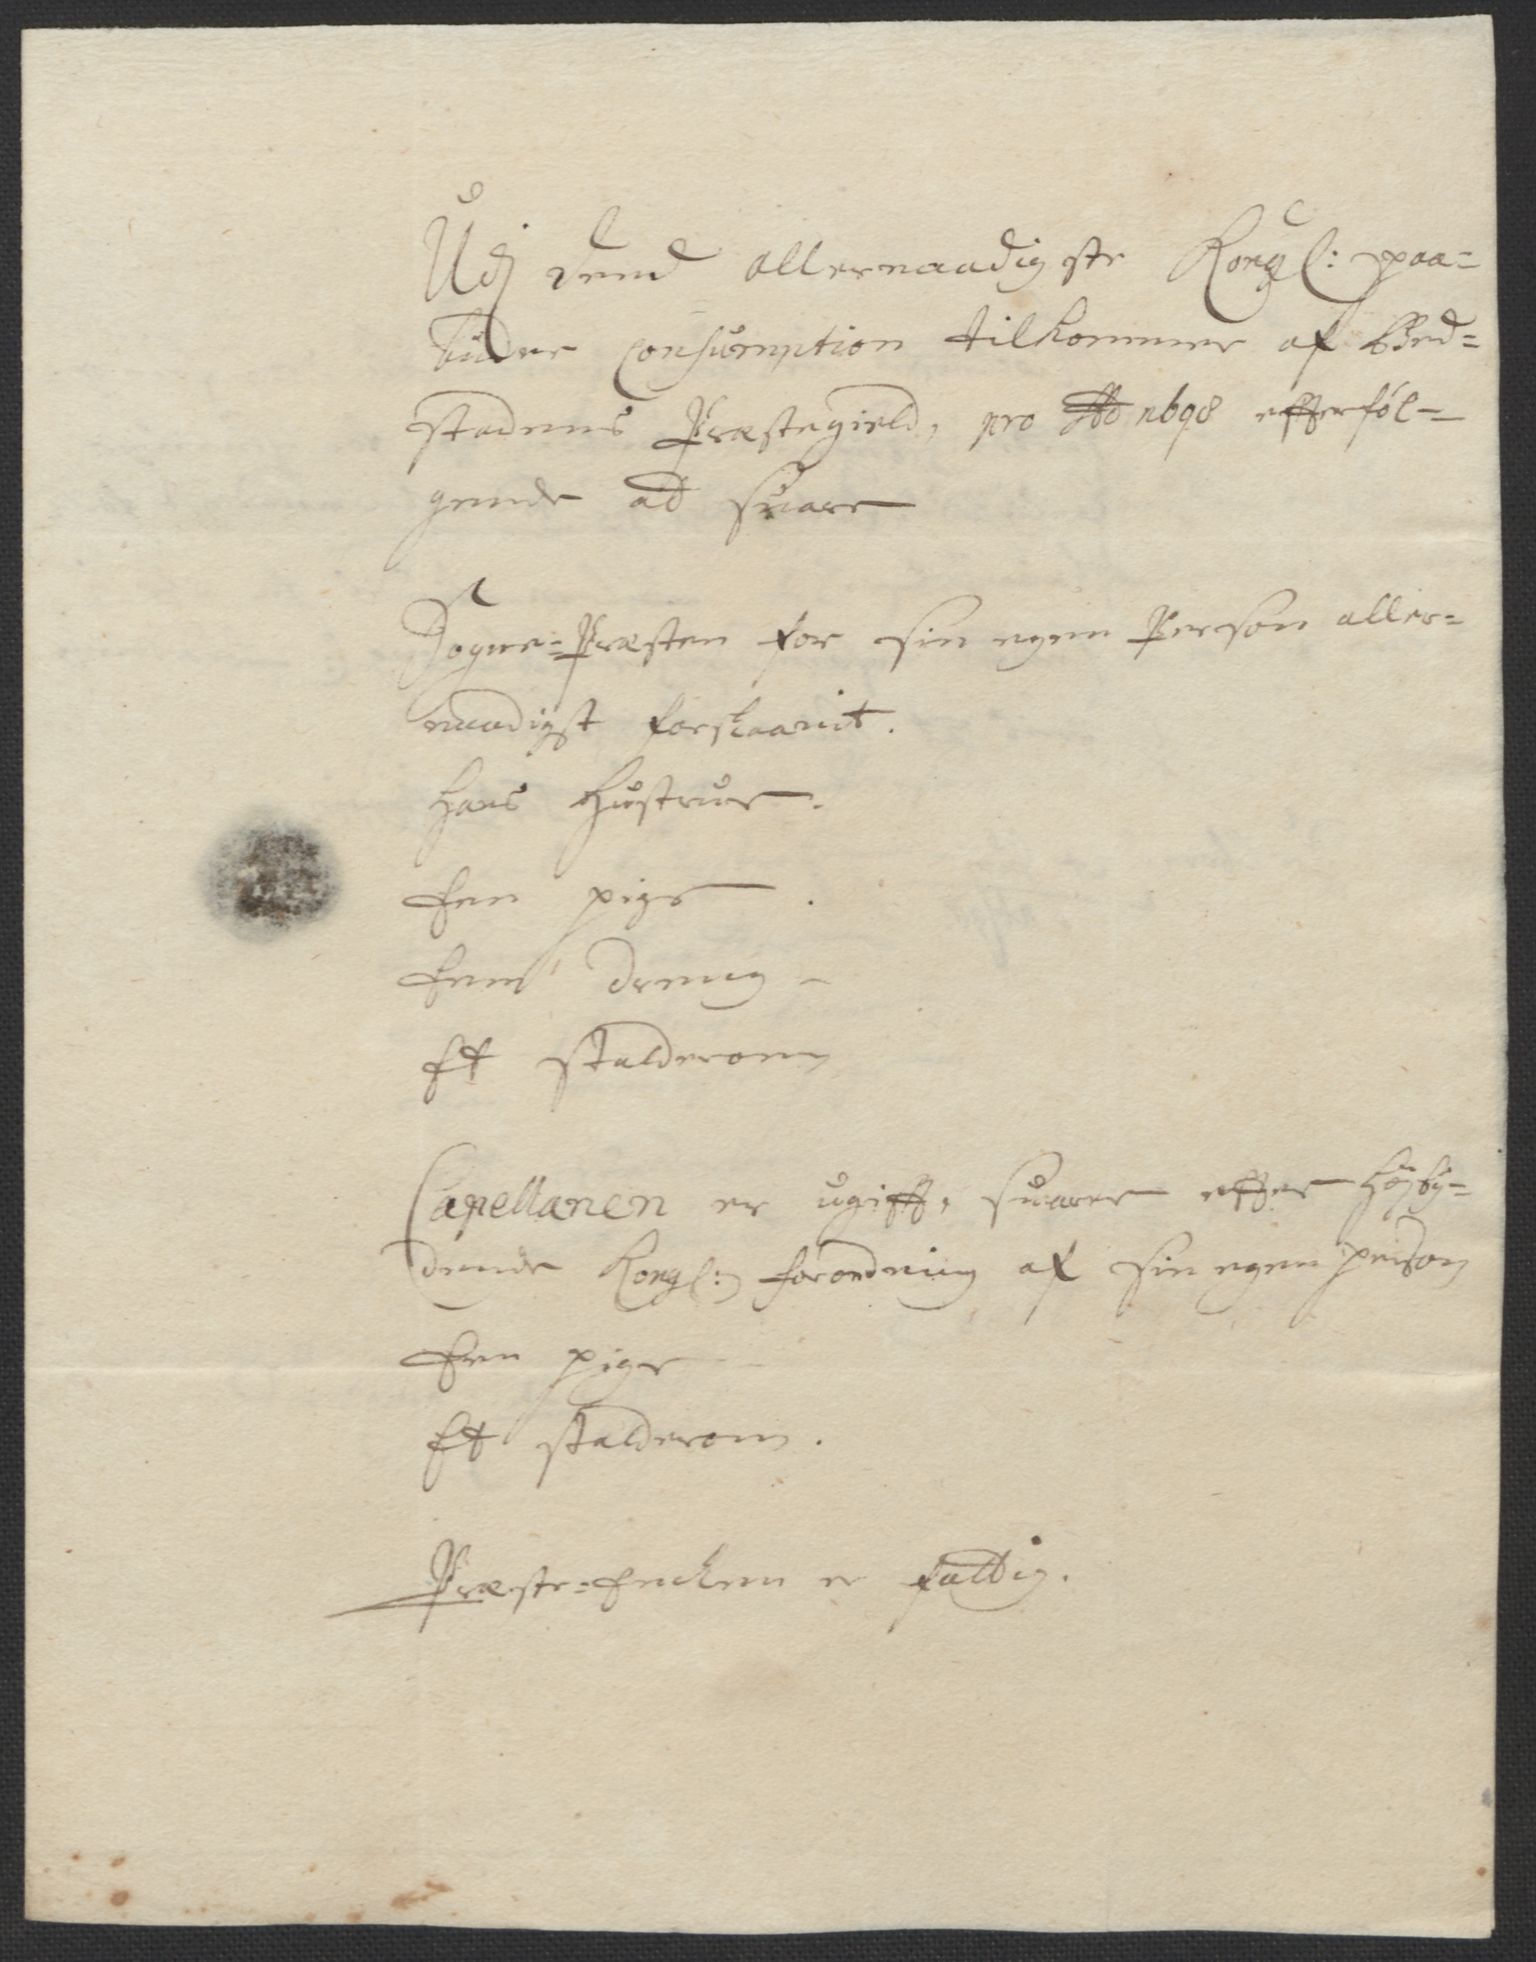 Udj dend allernaadigste Kongl: paa-
budne Consumption tilkommer af Bed-
stadens Præstegield, pro Ao 1698 effterföl-
gende at suare
Sogne-Præsten for sin egen Person aller-
naadigst forskaanit.
Hans Hustrue.
Een pige.
Een dreng -
Et stalderom
Capellanen er ugifft, suarer effter Höyby-
dende Kongl: forordning af sin egen person
Een pige
Et stalderom.
Præste-Encken er fattig.